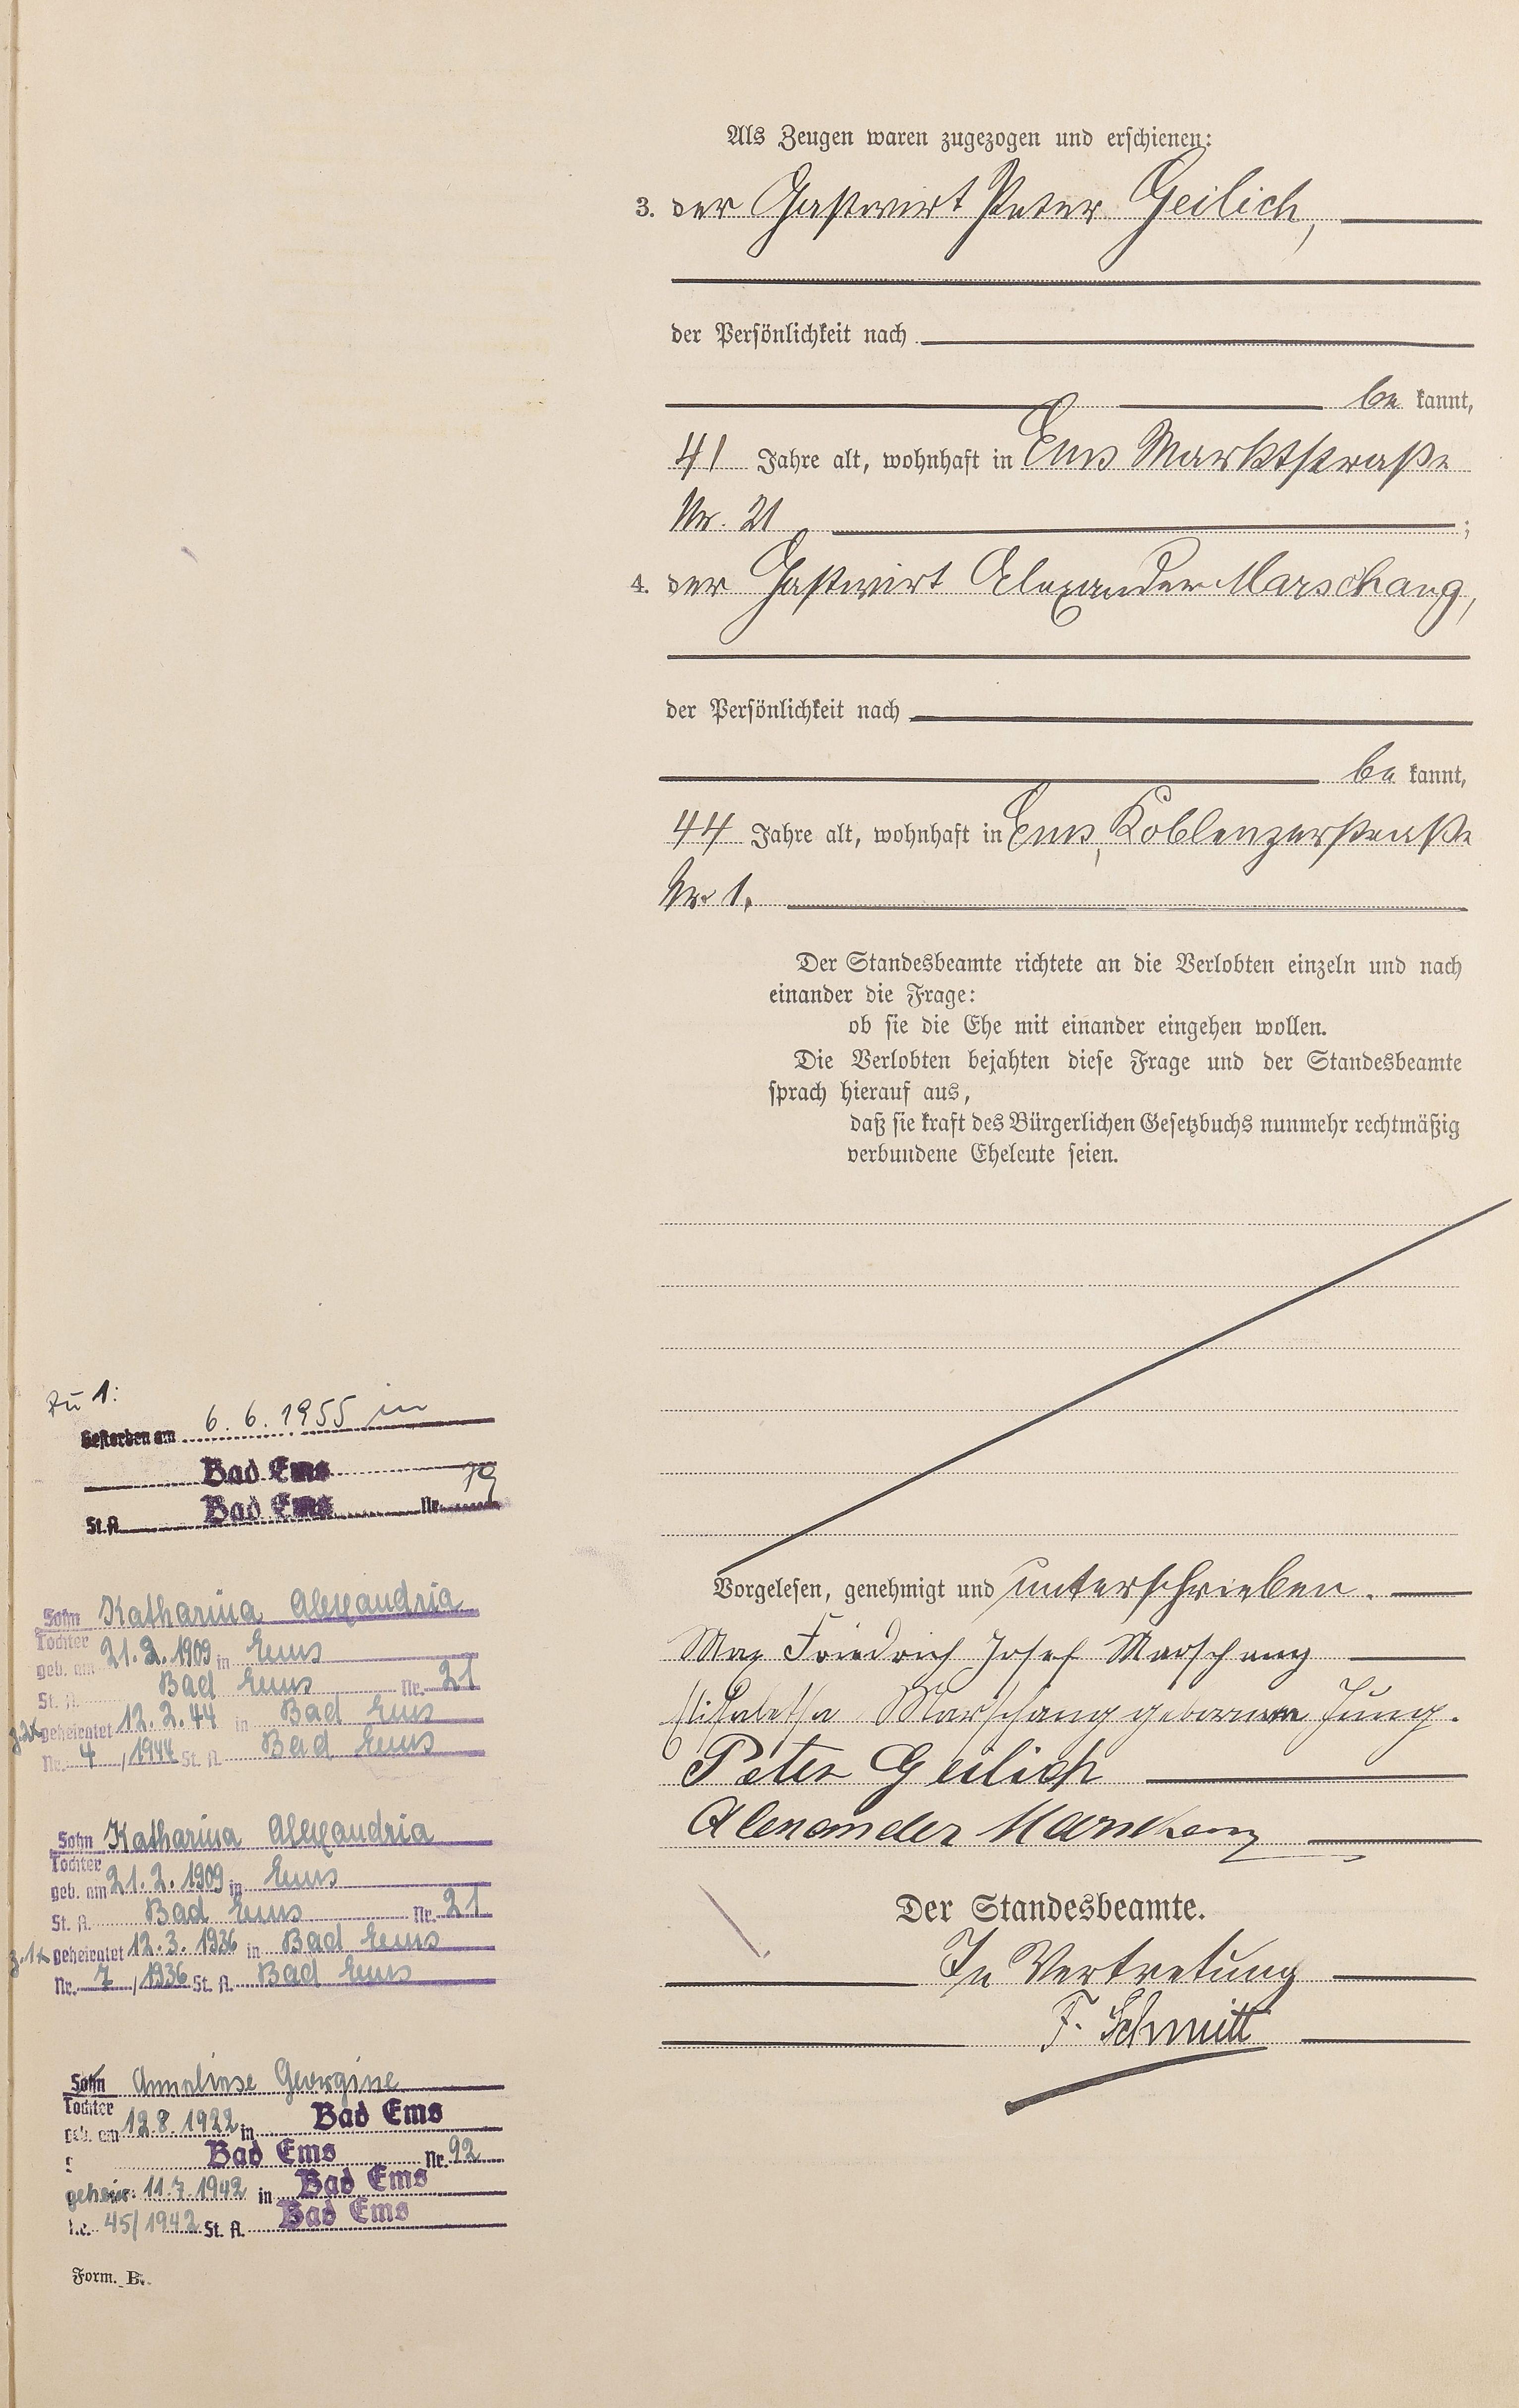 Als Zeugen waren zugezogen und erschienen:
3. der Gastwirt Peter Geilich,
der Persönlichkeit nach
be kannt,
41 Jahre alt, wohnhaft in Ems Marktstraße
Nr. 21 ;
4. der Gastwirt Alexander Marschang,
der Persönlichkeit nach
be kannt,
44 Jahre alt, wohnhaft in Ems, Koblenzerstraße
Nr. 1.
Der Standesbeamte richtete an die Verlobten einzeln und nach
einander die Frage:
ob sie die Ehe mit einander eingehen wollen.
Die Verlobten bejahten diese Frage und der Standesbeamte
sprach hierauf aus,
daß sie kraft des Bürgerlichen Gesetzbuchs nunmehr rechtmäßig
verbundene Eheleute seien.
Vorgelesen, genehmigt und unterschrieben.
Max Friedrich Josef Marschang
Elisabetha Marschang geborene Jung.
Peter Geilich
Alexander Marschang
Der Standesbeamte.
In Vertretung
F. Schmitt
Zu 1:
Gestorben am 6. 6. 1955 in
Bad Ems
St. A. Bad Ems Nr. 79
Sohn Katharina Alexandria
Tochter
geb. am 21. 2. 1909 in Ems
St. A. Bad Ems Nr. 21
z. 2x geheiratet 12. 2. 44 in Bad Ems
Nr. 4 / 1944 St. A. Bad Ems
Sohn Katharina Alexandria
Tochter
geb. am 21. 2. 1909 in Ems
St. A. Bad Ems Nr. 21
z. 1x geheiratet 12. 3. 1936 in Bad Ems
Nr. 7 / 1936 St. A. Bad Ems
Sohn Anneliese Georgine
Tochter
geb. am 12. 8. 1922 in Bad Ems
Bad Ems Nr. 92
geheir: 11. 7. 1942 in Bad Ems
45/1942 St. A. Bad Ems
Form. B.